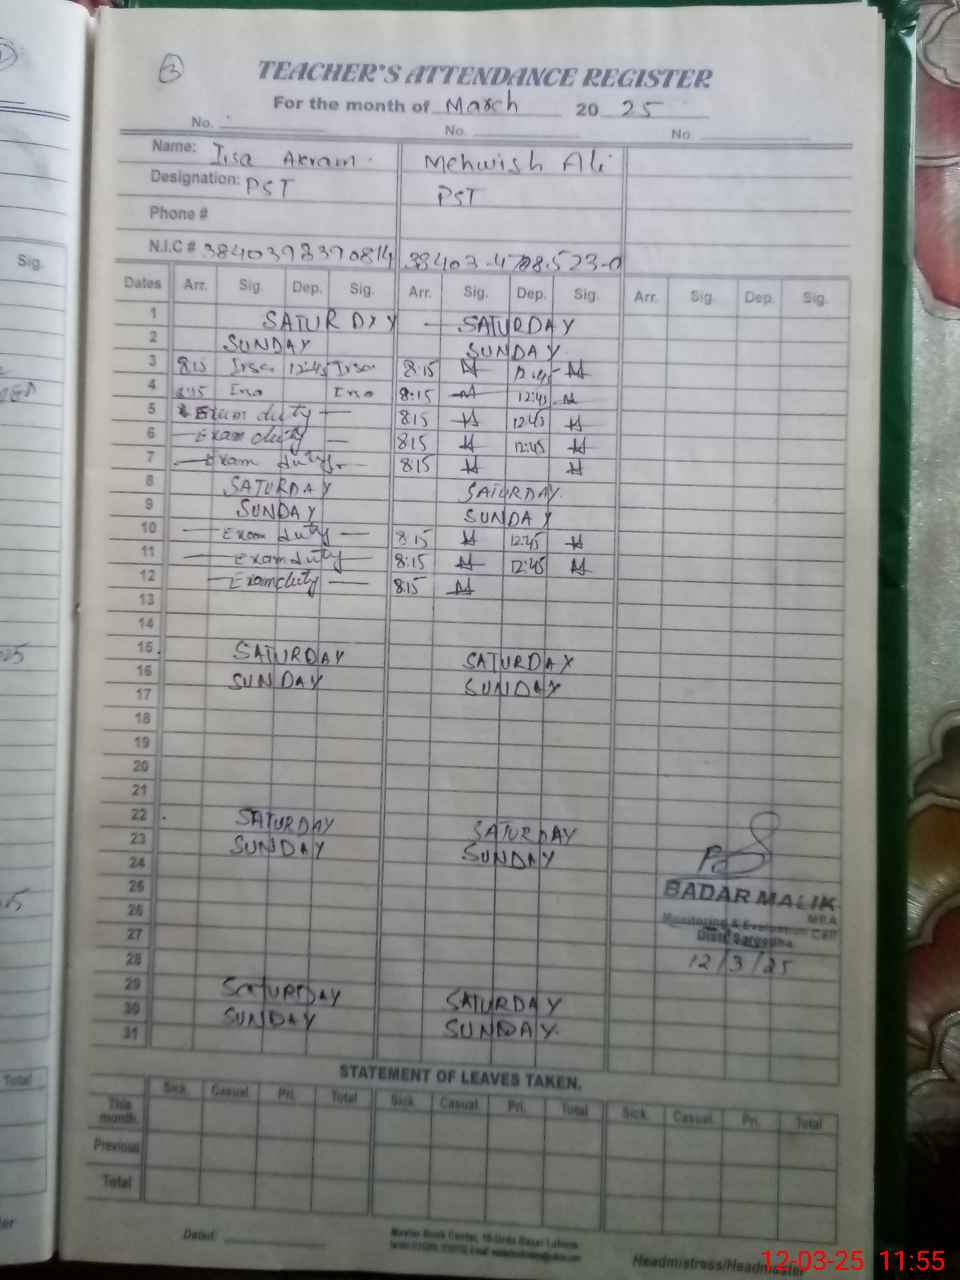 3
TEACHER'S ATTENDANCE REGISTER
For the month of March 2025
No. No. No.
Name: Irsa Akram. Mehwish Ali
Designation: PST PST
Phone #
N.I.C # 3840398390814 38403-4
Sig.
Dates Arr. Sig. Dep. Sig. Arr. Sig. Dep. Sig. Arr. Sig. Dep. Sig.
1 SATURDAY SATURDAY
2 SUNDAY SUNDAY
3 8:15 Irsa 12:45 Irsa 8:15 12:45
4 8:15 8:15 12:45
5 Exam duty 8:15 12:45
6 Exam duty 8:15 12:45
7 Exam duty 8:15
8 SATURDAY SATURDAY.
9 SUNDAY SUNDAY
10 Exam duty 8:15 12:45
11 Exam duty 8:15 12:45
12 Exam duty 8:15
13
14
15 SATURDAY SATURDAY
16 SUNDAY SUNDAY
17
18
19
20
21
22 SATURDAY SATURDAY
23 SUNDAY SUNDAY
24
25
26
27
28
29 SATURDAY SATURDAY
30 SUNDAY SUNDAY.
31
BADAR MALIK
MEA
Monitoring & Evaluation Cell
Distt Sargodha
12/3/25
STATEMENT OF LEAVES TAKEN.
Total
Sick Casual Pri. Total Sick Casual Pri. Total Sick Casual Pri. Total
This month
Previous
Total
Dated:
Headmistress/Headmaster
12-03-25 11:55